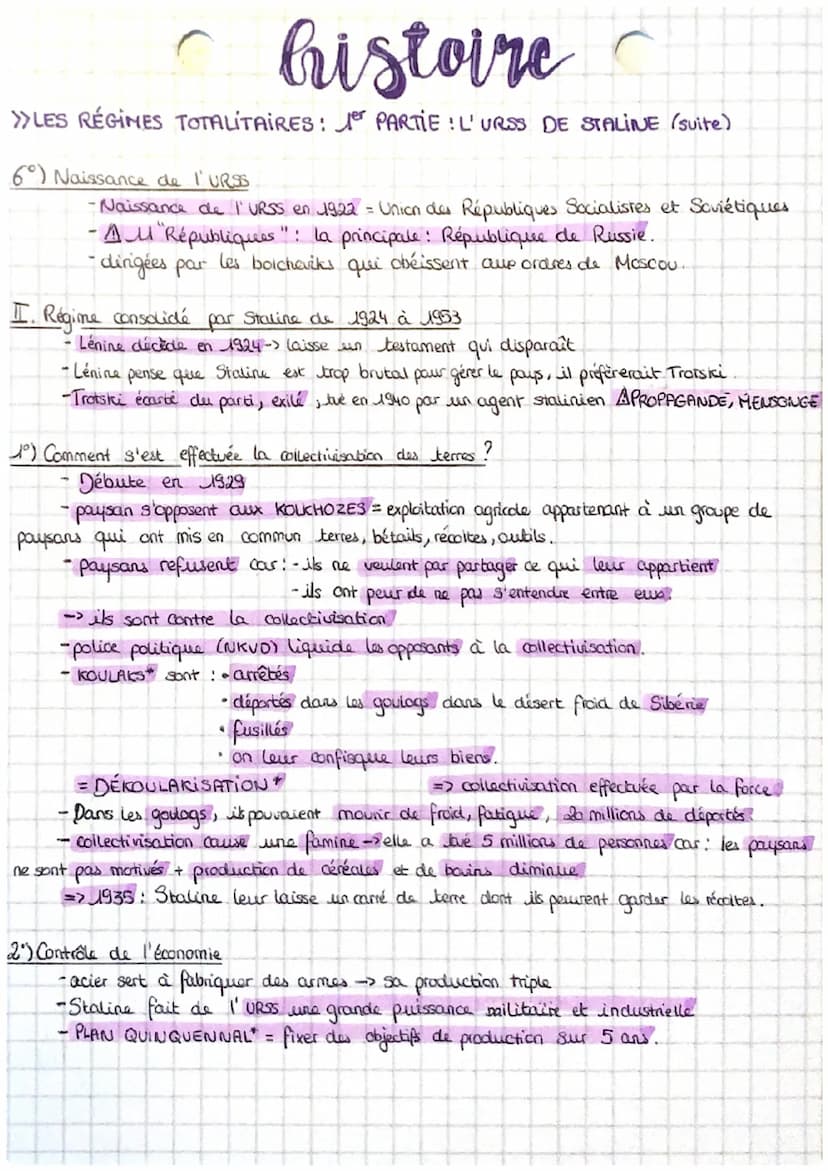 histoire
>>LES RÉGIMES TOTALITAIRES : 1er PARTIE : L'URSS DE STALINE (suite)
6°) Naissance de l'URSS
- Naissance de l'URSS en 1922 = Union des Républiques Socialistes et Soviétiques
- ⚠ 11 "Républiques" : la principale : République de Russie.
- dirigées par les bolcheviks qui obéissent aux ordres de Moscou.
II. Régime consolidé par Staline de 1924 à 1953
- Lénine décède en 1924 -> laisse un testament qui disparaît
- Lénine pense que Staline est trop brutal pour gérer le pays, il préfèrerait Trotski.
- Trotski écarté du parti, exilé, tué en 1940 par un agent stalinien ⚠PROPAGANDE, MENSONGE
1°) Comment s'est effectuée la collectivisation des terres ?
- Débute en 1929
- paysan s'opposent aux KOLKHOZES = exploitation agricole appartenant à un groupe de
paysans qui ont mis en commun terres, bétails, récoltes, outils.
- Paysans refusent car : - ils ne veulent par partager ce qui leur appartient
- ils ont peur de ne pas s'entendre entre eux.
-> ils sont contre la collectivisation
- police politique (NKVD) liquide les opposants à la collectivisation.
- KOULAKS* sont : • arrêtés
• déportés dans les goulogs dans le désert froid de Sibérie
• fusillés
• on leur confisque leurs biens.
= DÉKOULARISATION* => collectivisation effectuée par la force
- Dans les goulogs, ils pouvaient mourir de froid, fatigue, 20 millions de déportés.
- collectivisation cause une famine -> elle a tué 5 millions de personnes car : les paysans
ne sont pas motivés + production de céréales et de bovins diminue
=> 1935 : Staline leur laisse un carré de terre dont ils peuvent garder les récoltes.
2°) Contrôle de l'économie
- acier sert à fabriquer des armes -> sa production triple
- Staline fait de l'URSS une grande puissance militaire et industrielle
- PLAN QUINQUENNAL* = fixer des objectifs de production sur 5 ans.